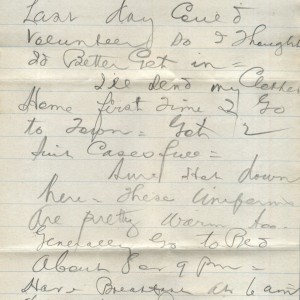 Last Day Could
Volunteer So I Thought
I'd Better Get in =
I'll send my Clothes
Home first Time I Go
to Town = Got 2
Suit Cases full =
Sure Hot down
here = These Uniforms
Are pretty warm too =
Generally Go to Bed
About 8 or 9 pm =
Have Breakfast At 6 am